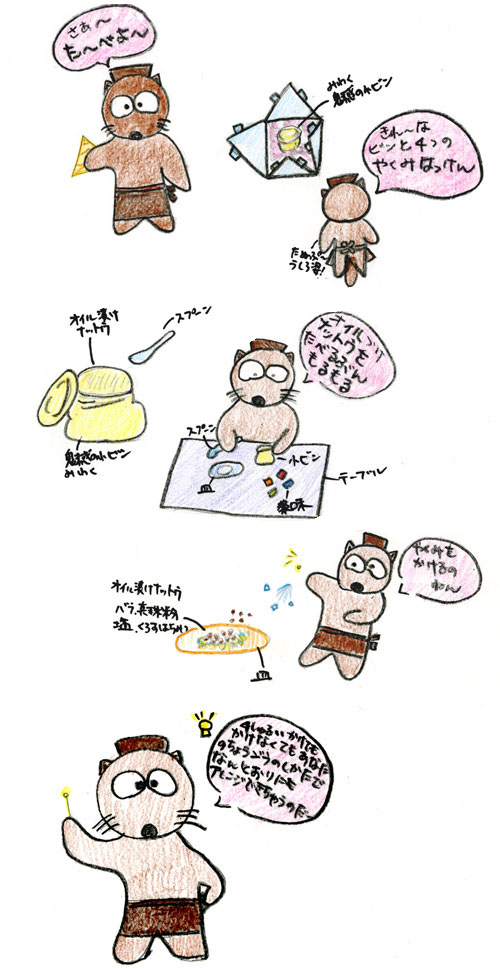 さぁ〜
た〜べよ〜
みわく
魅惑の小ビン
きれ〜な
ビンと4つの
やくみはっけん
たぬぷ〜
うしろ姿!
オイル漬け
ナットウ
スプーン
魅惑の小ビン
みわく
オイルづけ
ナットウを
たべるぶん
もるもる
スプーン
小ビン
皿
薬味
テーブル
やくみを
かけるの
オイル漬けナットウ
バラ、真珠粉
塩、くろすはちみつ
皿
4しゅるいかけても
かけなくてもあなた
のちょうごうのしかたで
なんとおりにも
アレンジできちゃうのだ〜